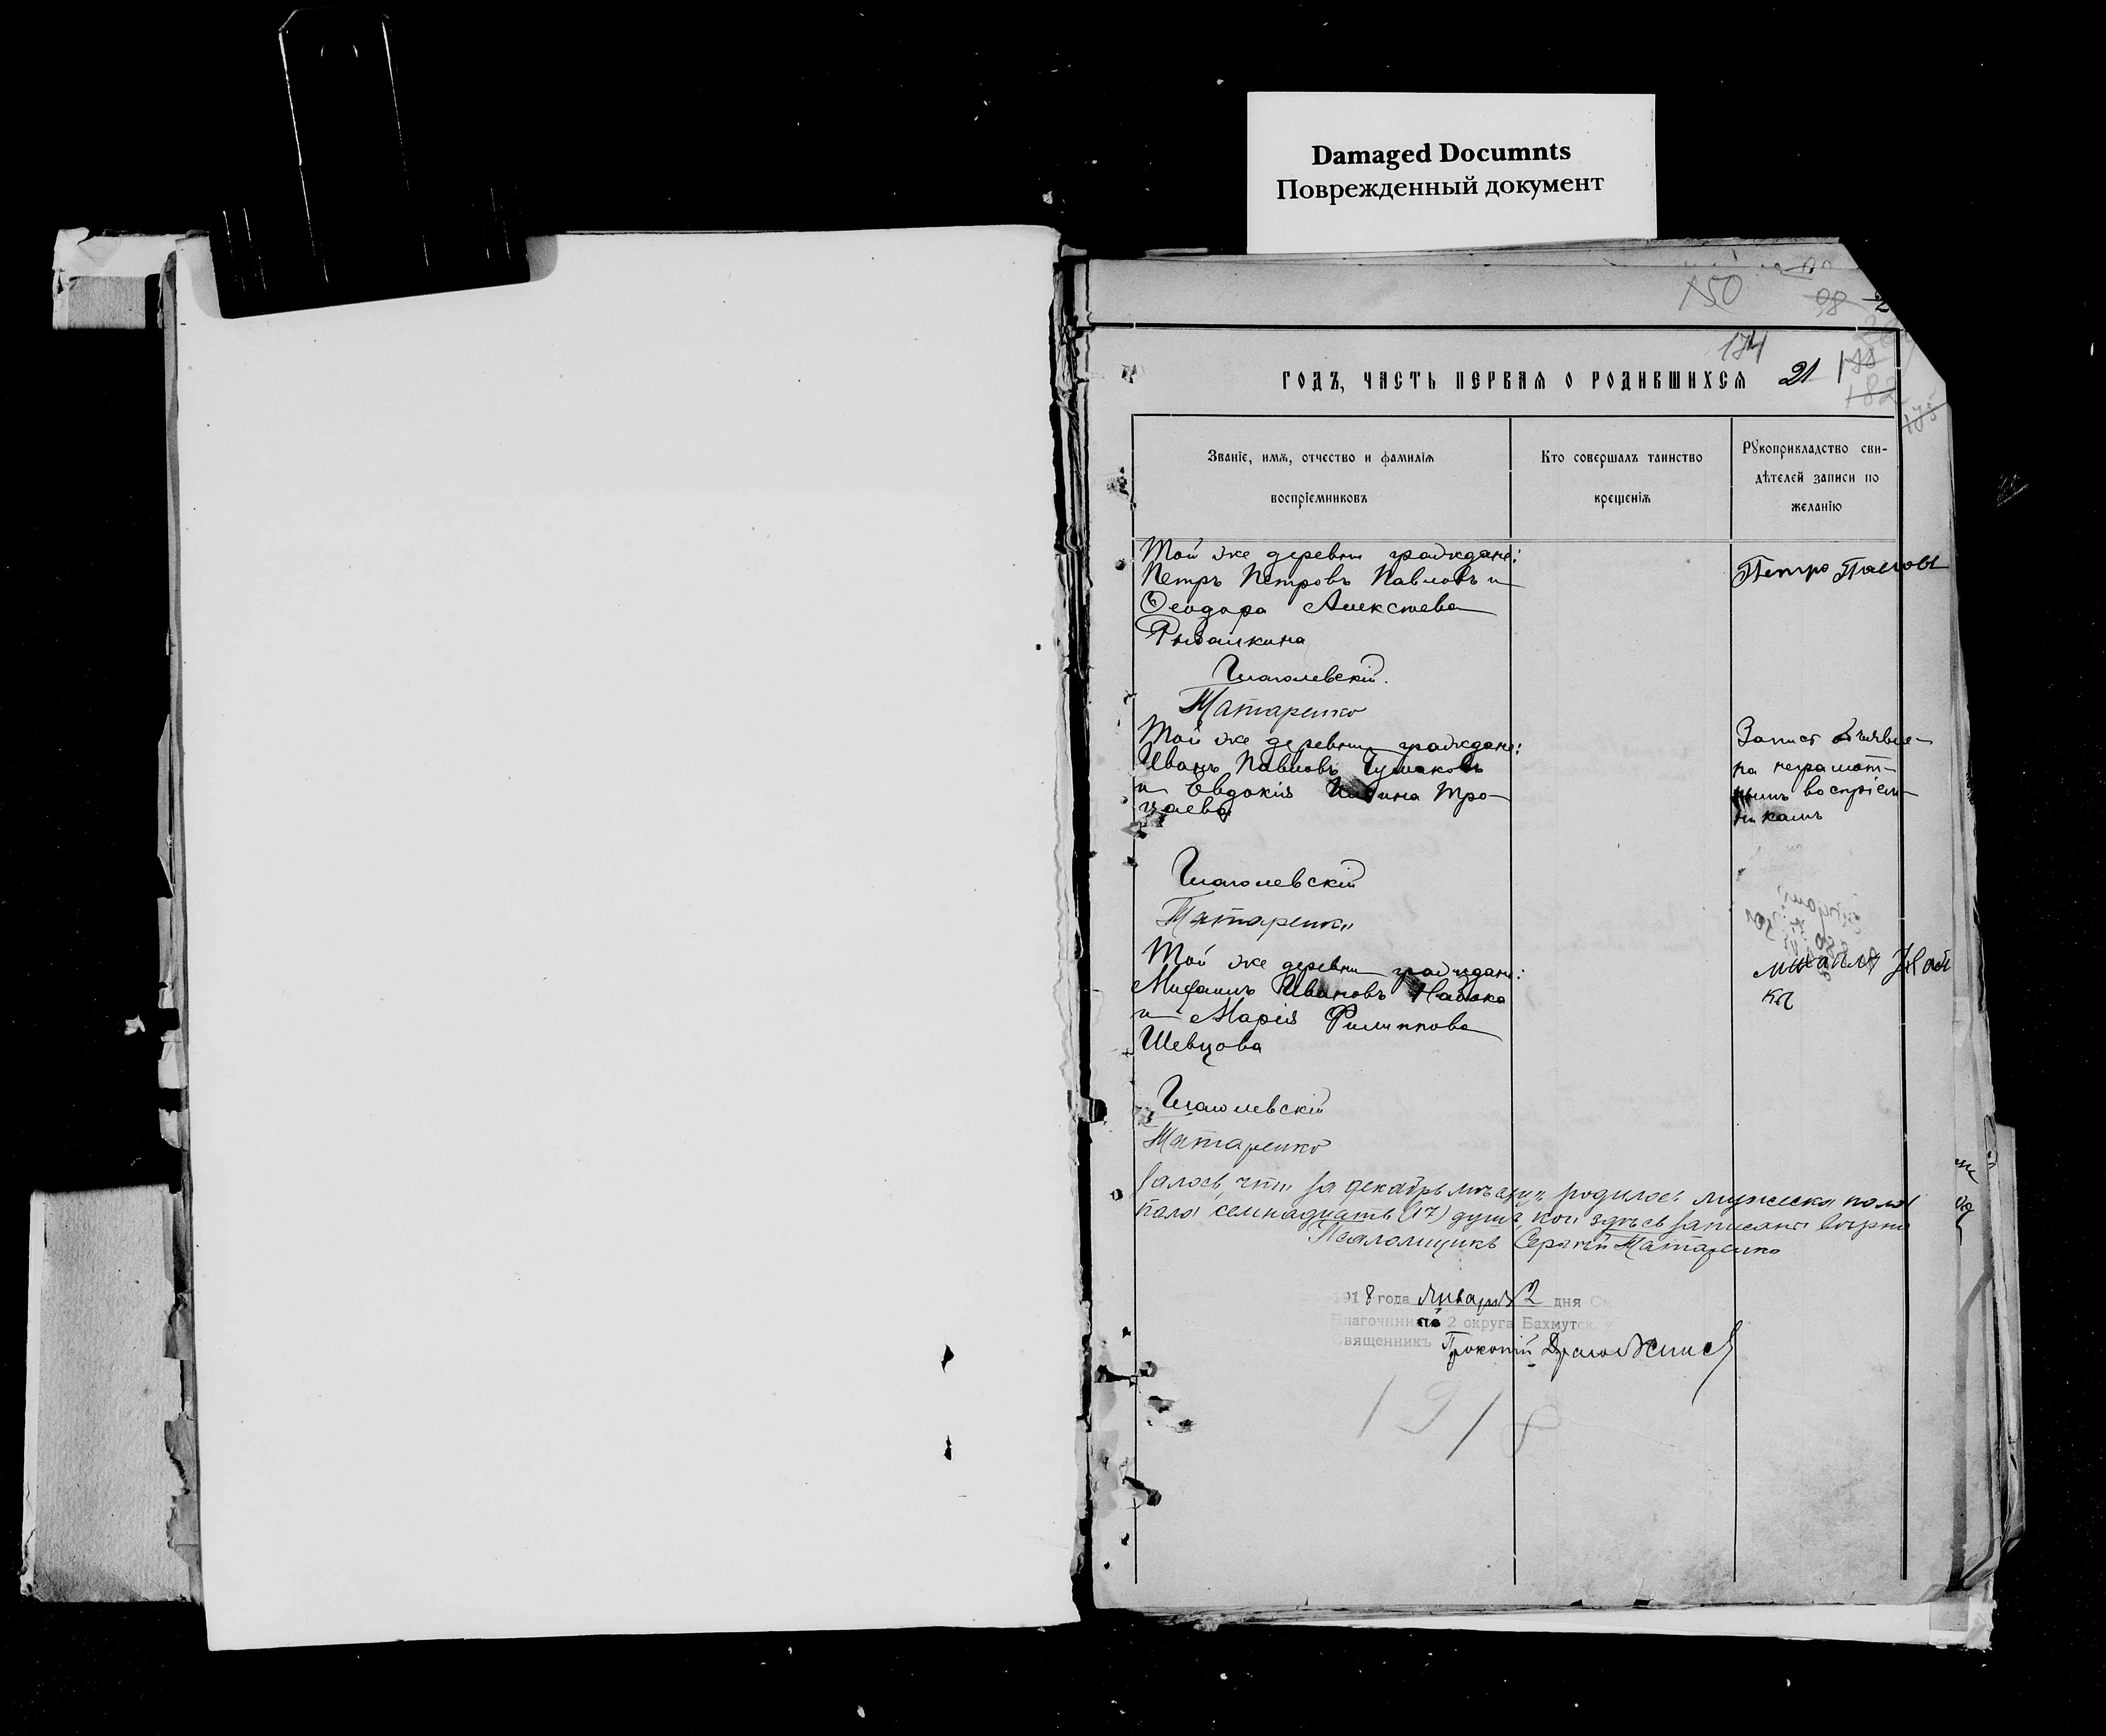 Damaged Documnts
Поврежденный документ
150
98
2
174
ГОДЪ, ЧАСТЬ ПЕРВАЯ О РОДИВШИХСЯ 21
182
175
Званіе, имя, отчество и фамилія
воспріемниковъ
Кто совершалъ таинство
крещенія
Рукоприкладство сви-
дѣтелей записи по
желанію
Той же деревни граждане:
Петръ Петровъ Павловъ и
Ѳеодора Алексѣева
Рыбалкина
Глаголевскій.
Татаренко
Петро Павловъ
Той же деревни граждане:
Иванъ Павловъ
и Евдокія
Глаголевскій
Татаренко
Запись
на неграмот-
нымъ воспріем-
никамъ
Той же деревни граждане:
Михаилъ Ивановъ
и Марія Филиппова
Шевцова
Глаголевскій
Татаренко
залось, что за декабрь мѣсяцъ родилось мужеска пола
пола семнадцать (17) душъ, кои здѣсь записаны вѣрно
Псаломщикъ Сергѣй Татаренко
1918 года Января 2 дня
Благочинн 2 округа Бахмутск. у
Священникъ Прокопій
1918